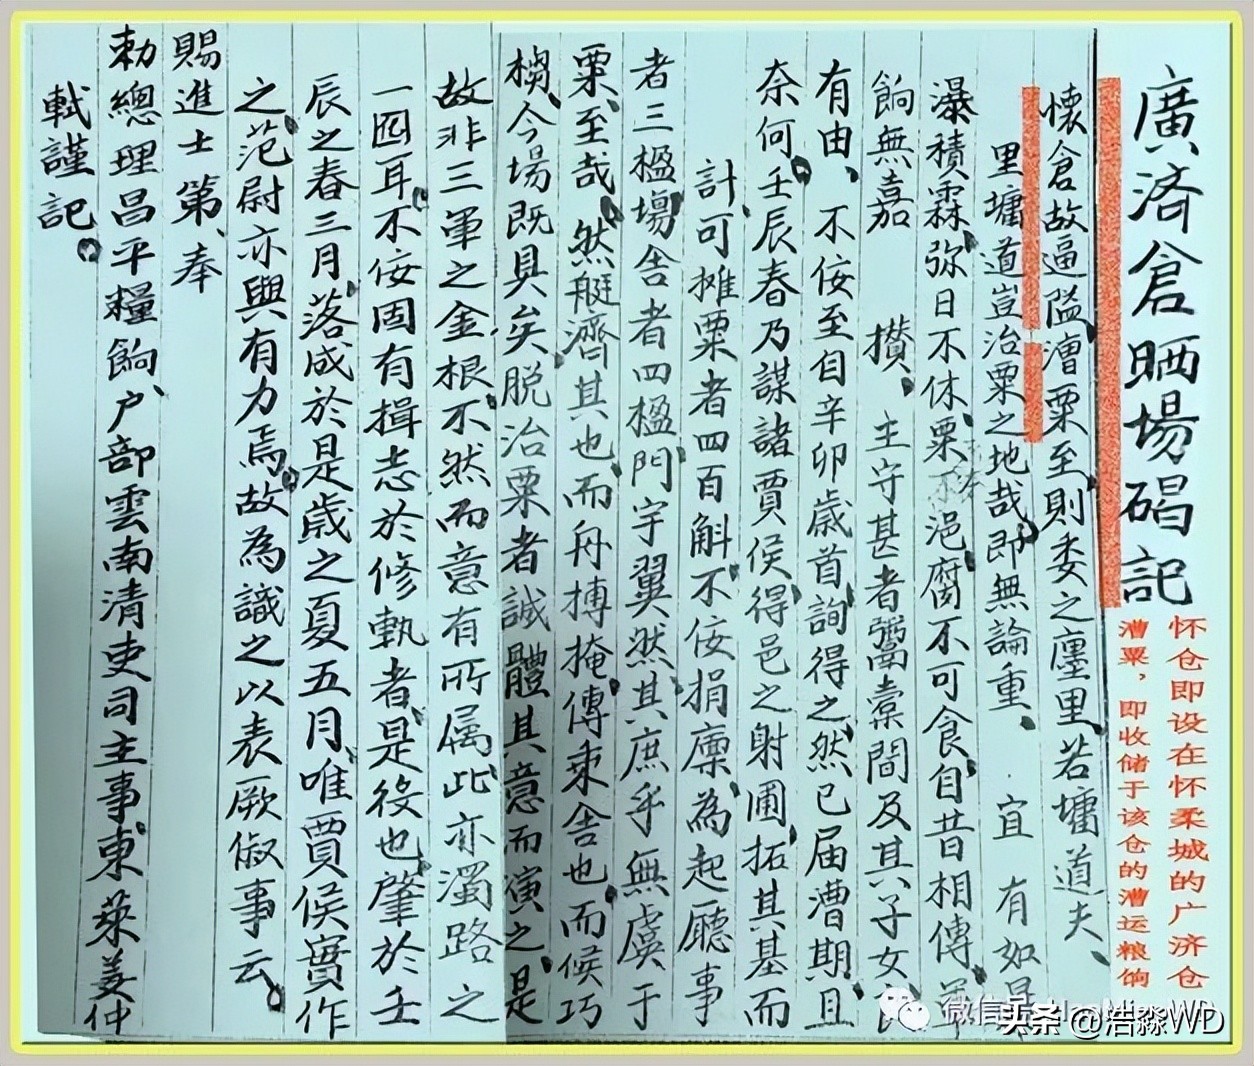 廣済倉晒場碣記
怀仓即设在怀柔城的广济仓
漕粟，即收储于该仓的漕运粮饷
懷倉故逼隘漕粟至則委之廛里、若墉道夫、
里墉道豈治粟之地哉、即無論重、宜有如
瀑積霖、弥日不休、粟浥腐不可食、自昔相傳、
餉無嘉 攅、主守甚者鬻槖間及其子女
有由、不佞至自辛卯歳首、詢得之、然已届漕期、且
奈何、壬辰春乃謀諸賈侯、得邑之射圃、拓其基而
計可摊粟者四百斛、不佞捐廩、為起廳事
者三楹、塲舍者四楹、門宇翼然、其庶乎無虞于
粟、至哉、然艇濟其也、而舟搏掩、傳束舍也、而候巧
榒、今場既具矣、脱治粟者誠體其意而演之、是
故非三軍之金根、不然而意有所属、此亦濁路之
一囮耳、不佞固有揖志於修執者、是役也、肇於壬
辰之春三月、落成於是歳之夏五月、唯賈侯實作
之、范尉亦與有力焉、故為識之以表厥俶事云、
賜進士第、奉
勅總理昌平糧餉、户部雲南清吏司主事、東萊姜仲
軾謹記、
头条 @浩淼WD